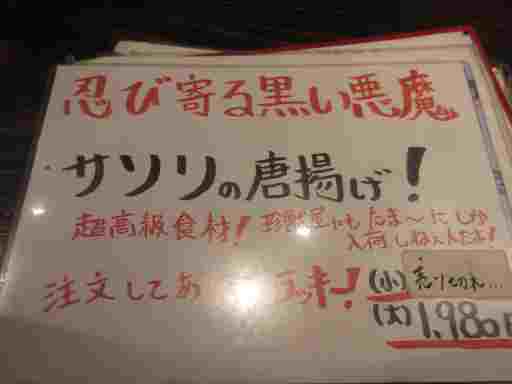 忍び寄る黒い悪魔
サソリの唐揚げ!
超高級食材! 珍獣屋にもたま〜にしか
入荷しねぇんだよ!
注文してあ ッキー!
(小) 売り切れ...
(大) 1,980円